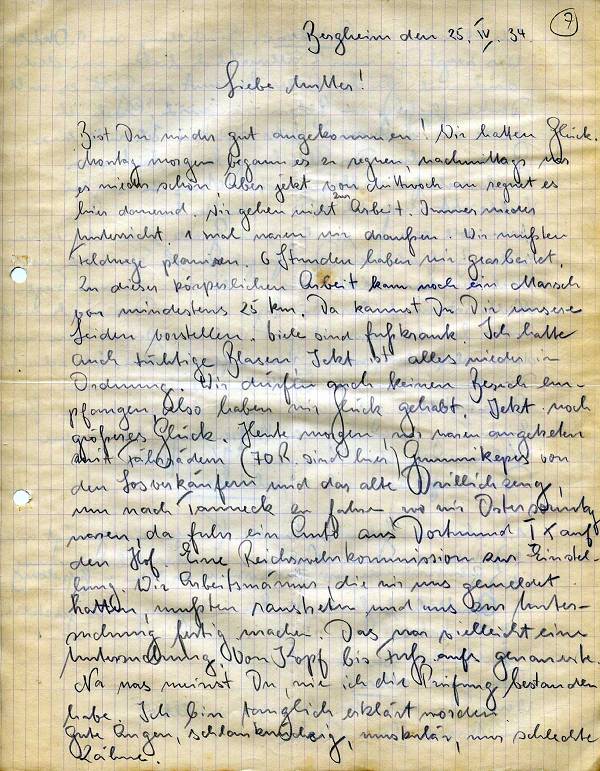 7
Bergheim den 25. IV. 34.
Liebe Mutter!
Bist Du wieder gut angekommen! Wir hatten Glück.
Montag morgen begann es zu regnen, nachmittags war
es wieder schön, Aber jetzt von Mittwoch an regnet es
hier dauernd. Wir gehen nicht zur Arbeit. Immer wieder
Unterricht. 1 mal waren wir draußen. Wir mußten
Feldwege planieren. 6 Stunden haben wir gearbeitet.
Zu dieser körperlichen Arbeit kam noch ein Marsch
von mindestens 25 km. Da kannst Du Dir unsere
Leiden vorstellen. Viele sind fußkrank. Ich hatte
auch tüchtige Blasen. Jetzt ist alles wieder in
Ordnung. Wir dürfen auch keinen Besuch em-
pfangen, also haben wir Glück gehabt. Jetzt noch
größeres Glück. Heute morgen, wir waren angetreten
mit Fahrrädern (70 R. sind hier) Gummikepes von
den Losverkäufern und das alte Drillichzeug,
um nach Tanneck zu fahren wo wir Ostersonntag
waren, da fuhr ein Auto aus Dortmund IX auf
den Hof. Eine Reichswehrkommission zur Einstel-
lung. Wir Arbeitsmänner die wir uns gemeldet
hatten, mußten raustreten und uns zur Unter-
suchung fertig machen. Das war vielleicht eine
Untersuchung. Von Kopf bis Fuß aufs genaueste.
Na was meinst Du, wie ich die Prüfung bestanden
habe. Ich bin tauglich erklärt worden
gute Augen, muskulär, nur schlechte
Zähne.